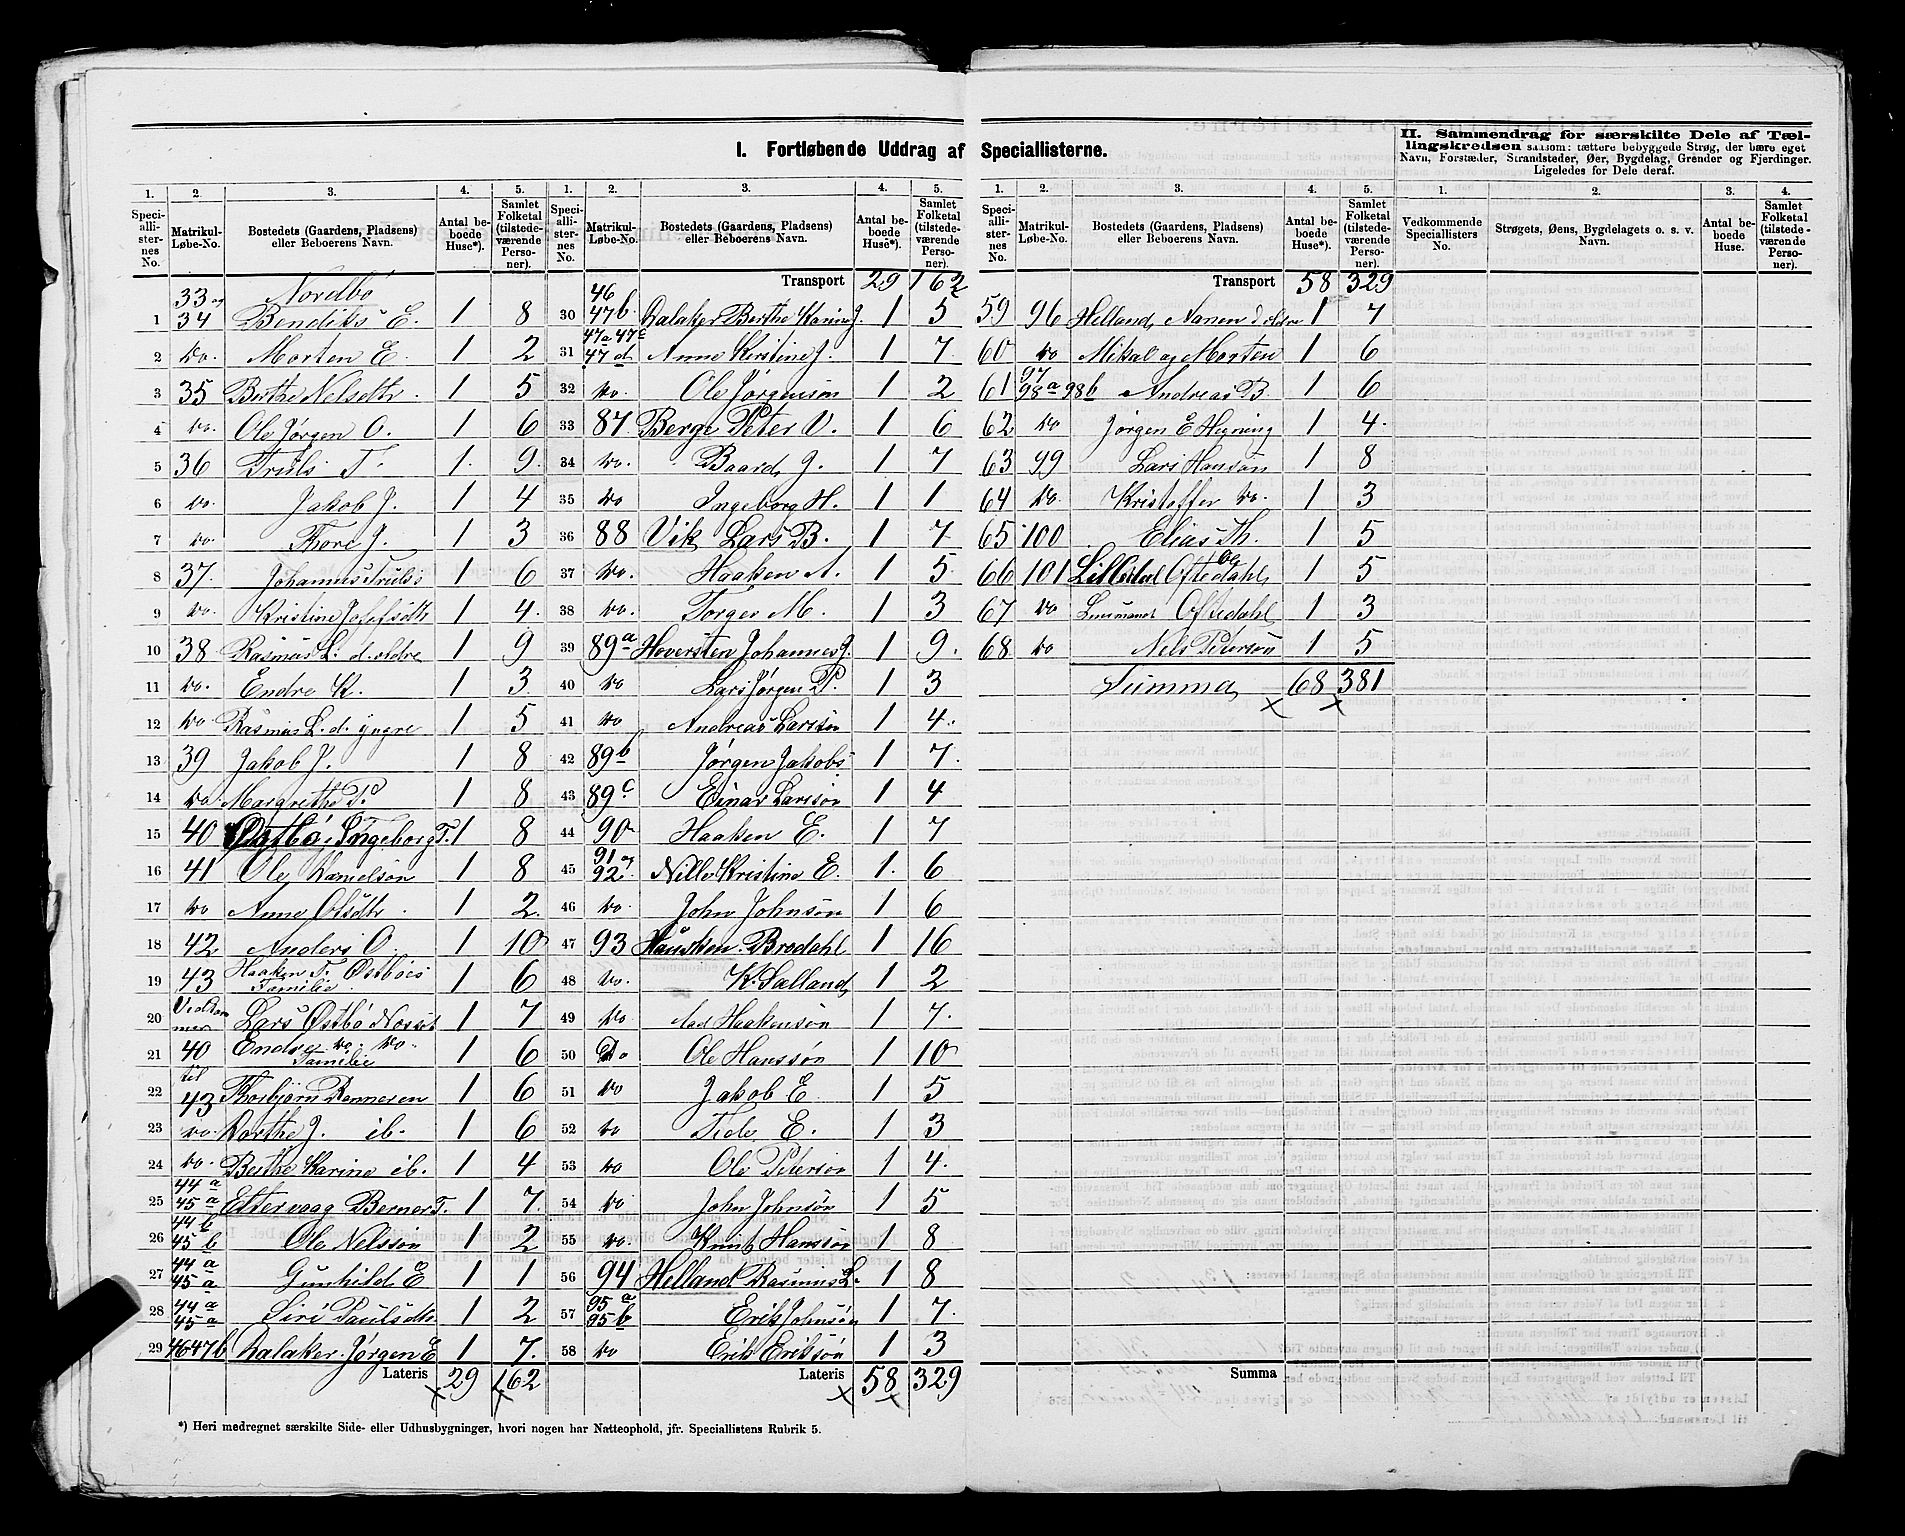 I. Fortløbende Uddrag af Speciallisterne.
II. Sammendrag for særskilte Dele af Tæl-
lingskredsen saasom: tættere bebyggede Strøg, der bære eget
Navn, Forstæder, Strandsteder, Øer, Bygdelag, Grender og Fjerdinger.
Ligeledes for Dele deraf.
1. 2. 3. 4. 5.
Speciallisternes No. Matrikul-Løbe-No. Bostedets (Gaardens, Pladsens) eller Beboerens Navn. Antal beboede Huse*). Samlet Folketal (tilstedeværende Personer).
Nordbö
1 33 og 34 Bendiks E. 1 8
2 do. Morten E. 1 2
3 35 Berthe Nelsdtr. 1 5
4 do. Ole Jørgen O. 1 6
5 36 Truls T. 1 9
6 do. Jakob J. 1 4
7 do. Thore J. 1 3
8 37 Johannes Truls's 1 6
9 do. Kristine Josefsdtr 1 4
10 38 Rasmus L. d. ældre 1 9
11 do. Endre K. 1 3
12 do Rasmus L. d. yngre 1 5
13 39 Jakob J. 1 8
14 do Margrethe P. 1 8
15 40 Østbö Ingeborg T. 1 8
16 41 Ole Danielsøn 1 8
17 do Anne Olsdtr. 1 2
18 42 Anders O. 1 10
19 43 Haaken T. Østböes Familie 1 6
20 Vedkommer Lars Østbö 1 7
21 40 Endre do. do. Familie 1 6
22 til 43 Thorbjørn Rennesen 1 6
23 do. Dorthe J. ib. 1 6
24 do. Berthe Karine ib. 1 4
25 44a 45a Ettervaag Berner T. 1 7
26 44b 45b Ole Nelssøn 1 2
27 44a 45a Gunhild E 1 1
28 44a 45a Siri Paulsdtr. 1 2
29 46 47b Dalaker Jørgen E 1 7
Lateris 29 162
1. 2. 3. 4. 5.
Speciallisternes No. Matrikul-Løbe-No. Bostedets (Gaardens, Pladsens) eller Beboerens Navn. Antal beboede Huse*). Samlet Folketal (tilstedeværende Personer).
Transport 29 162
30 46 47b. Dalaker Berthe Karine J. 1 5
31 47a 47c 47d Anne Kirstine J. 1 7
32 do. Ole Jørgensøn 1 2
33 87 Berge Peter V. 1 6
34 do. Baard J. 1 7
35 do Ingeborg H. 1 1
36 88 Vik Lars B. 1 7
37 do. Haaken A. 1 5
38 do. Torger M. 1 3
39 89a Hoversten Johannes J. 1 9
40 do Lars Jørgen P. 1 3
41 do Andreas Larssøn 1 4
42 89b Jørgen Jakobs 1 7
43 89c Einar Larssøn 1 4
44 90 Haaken E. 1 7
45 91 og 92 Nille Kristine E. 1 6
46 do. John Johnsøn 1 6
47 93 Hausken Bredahl 1 16
48 do. K. Sælland 1 2
49 do Aad Haakensøn 1 7
50 do Ole Hanssøn 1 10
51 do Jakob E 1 5
52 do E. 1 3
53 do Ole Petersøn 1 4
54 do John Johnsøn 1 5
55 do. Knut Hanssøn 1 8
56 94 Helland Rasmus L. 1 8
57 95a 95b Erik Johnsøn 1 7
58 do Erik Eriksøn 1 3
Lateris 58 329
*) Heri medregnet særskilte Side- eller Udhusbygninger, hvori nogen har Natteophold, jfr. Speciallistens Rubrik 5.
1. 2. 3. 4. 5.
Speciallisternes No. Matrikul-Løbe-No. Bostedets (Gaardens, Pladsens) eller Beboerens Navn. Antal beboede Huse*). Samlet Folketal (tilstedeværende Personer).
Transport 58 329
59 96 Helland, d. ældre 1 7
60 do Mikal og Morten 1 6
61 97 98a 98b Andreas B. 1 6
62 do Jørgen E 1 4
63 99 Lars Hansøn 1 8
64 do. Kristoffer do. 1 3
65 100 Elias Th. 1 5
66 101 Oftedahl 1 5
67 do Lensmand Oftedahl 1 3
68 do Nels Petersøn 1 5
Summa 68 381
Summa
1. 2. 3. 4.
Vedkommende Speciallisters No. Strøgets, Øens, Bygdelagets o. s. v. Navn. Antal beboede Huse. Samlet Folketal (tilstedeværende Personer).